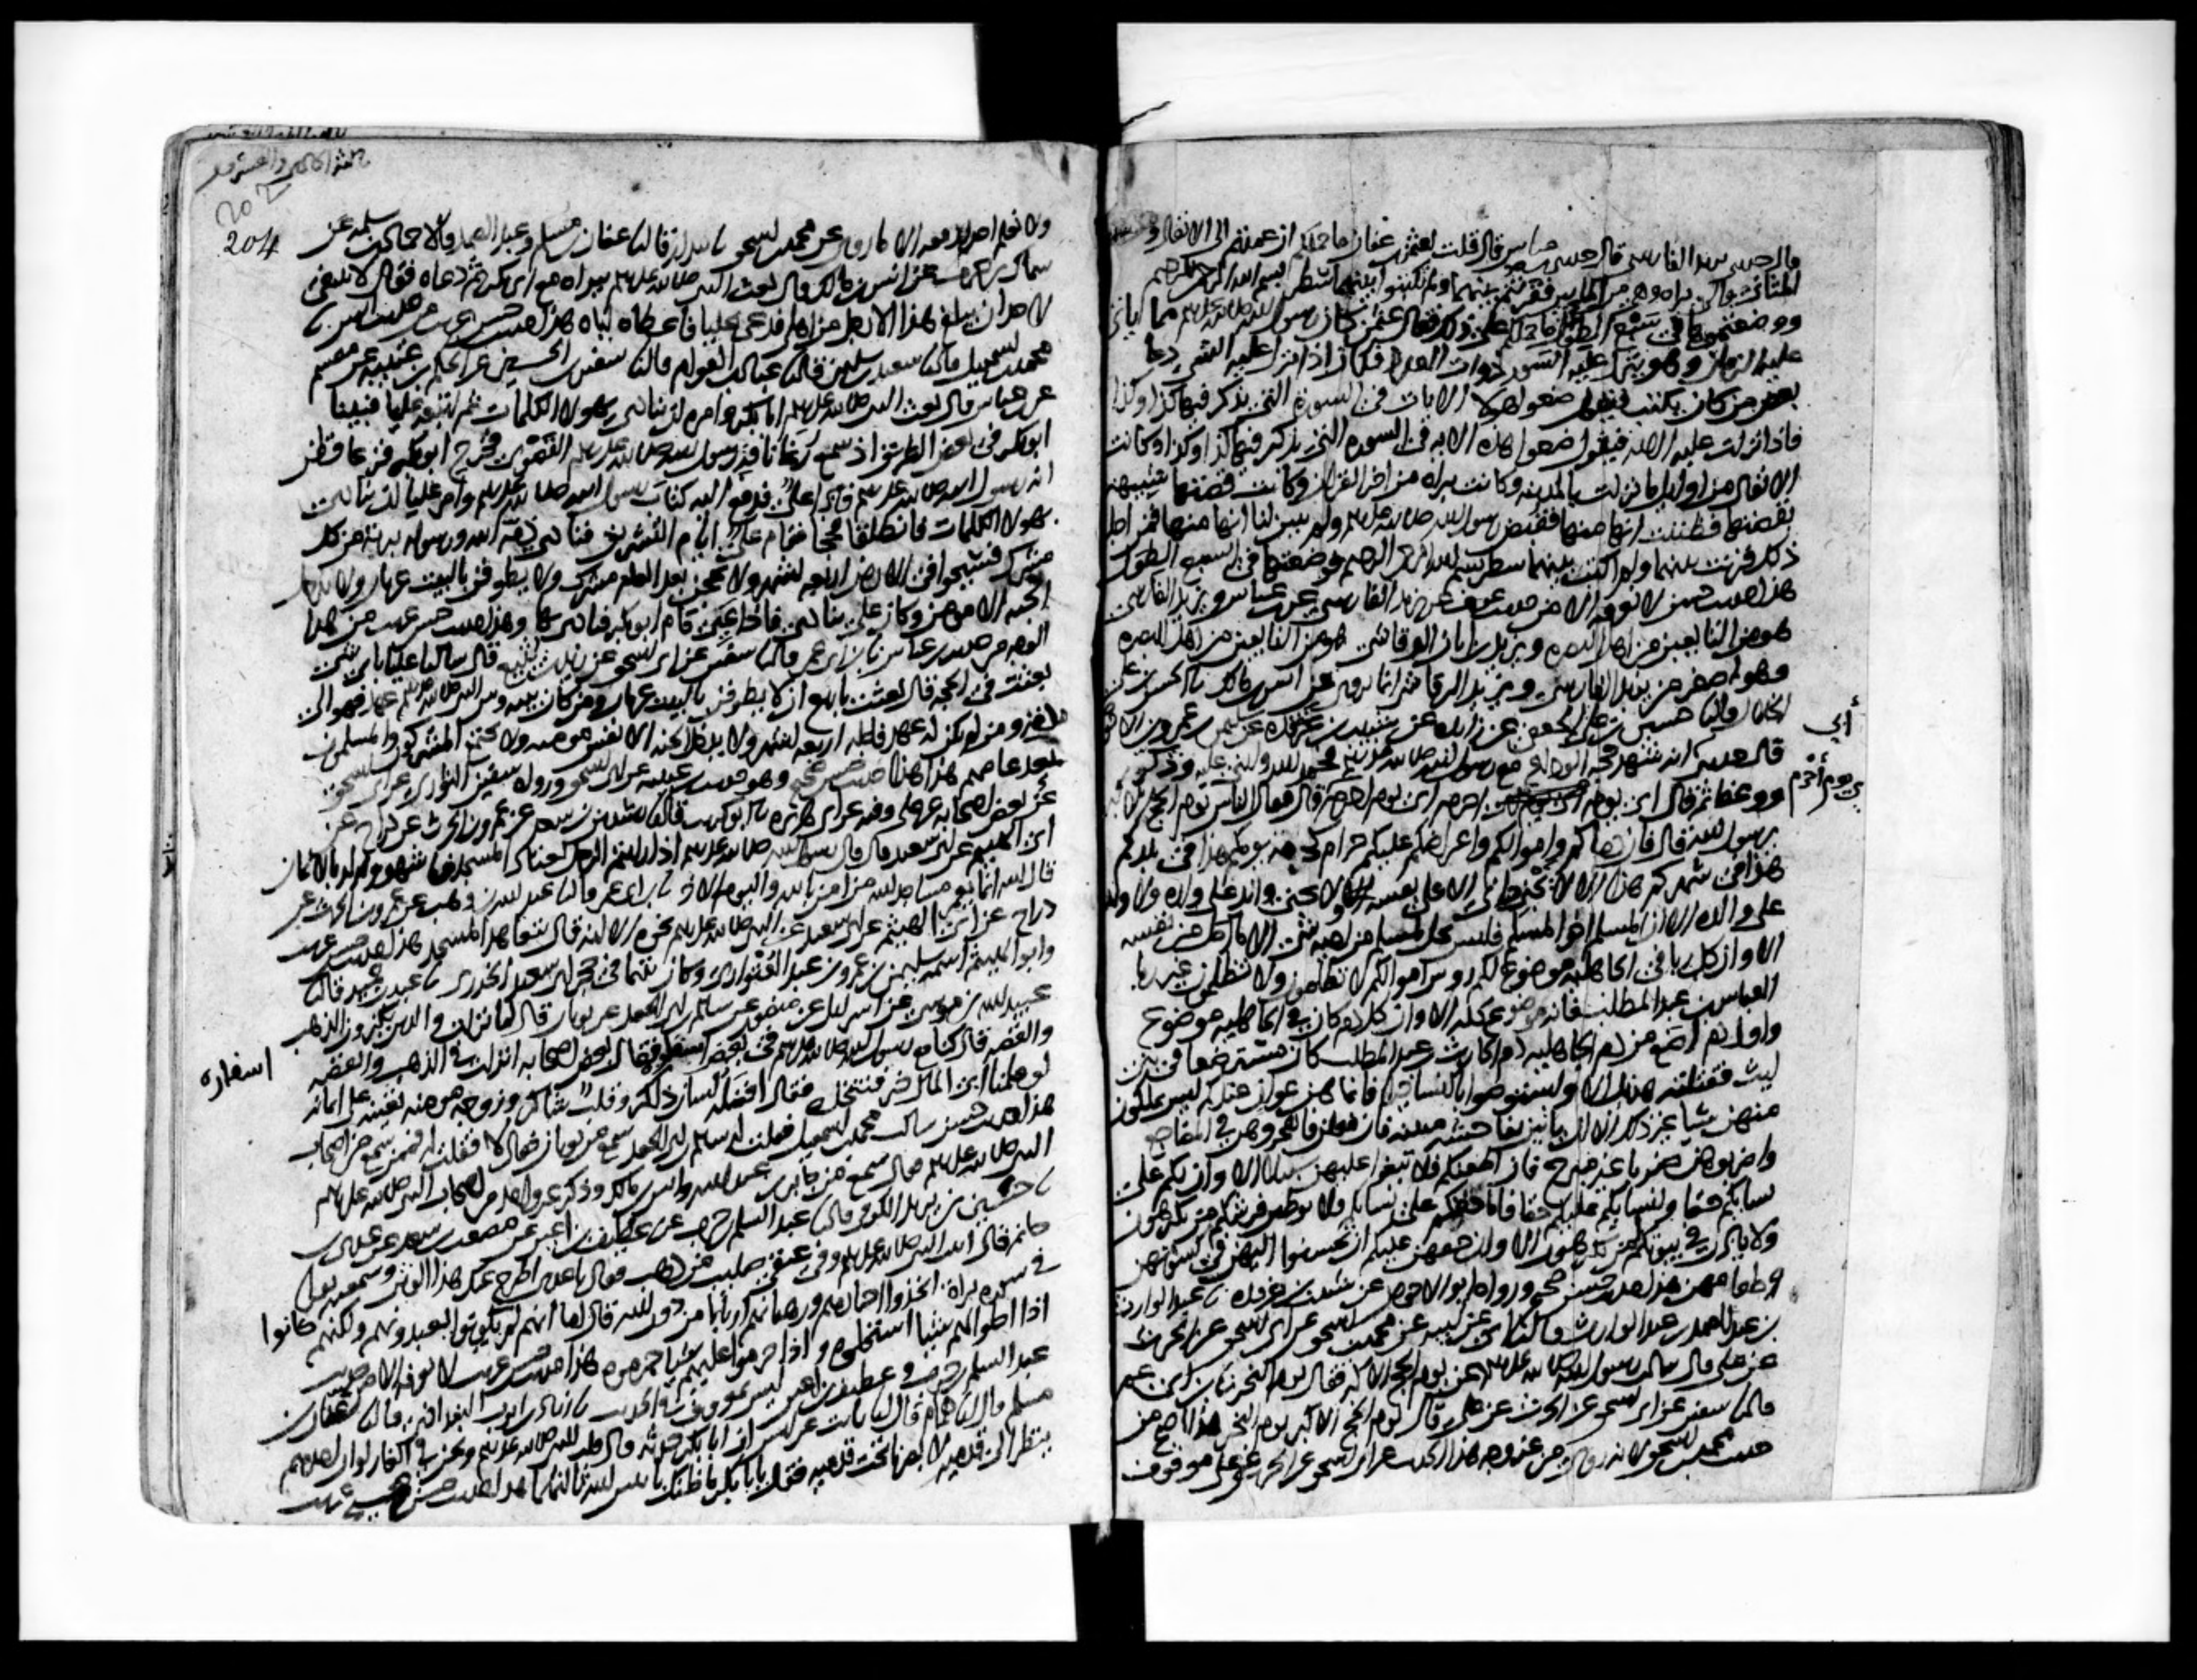 قال حدثني يزيد الفارسي قال حدثني ابن عباس قال قلت لعثمن بن عفان ما حملكم ان عمدتم الى الانفال وهي
المثاني والى براه وهي من المايين فقرنتم بينهما ولم تكتبوا بينهما سطر بسم الله الرحمن الرحيم
ووضعتموها في السبع الطول ما حملكم على ذلك فقال عثمن كان رسول الله صلى الله عليه وسلم مما ياتي
عليه الزمان وهو ينزل عليه السور ذوات العدد فكان اذا نزل عليه الشي دعا
بعض من كان يكتب فيقول ضعوا هولا الايات في السورة التي يذكر فيها كذا وكذا
فاذا نزلت عليه الايه فيقول ضعوا هذه الايه في السوره التي يذكر فيها كذا وكذا وكانت
الانفال من اوايل ما نزلت بالمدينه وكانت براه من اخر القران وكانت قصتها شبيهه
بقصتها فظننت انها منها فقبض رسول الله صلى الله عليه وسلم ولم يبين لنا انها منها فمن اجل
ذلك قرنت بينهما ولم اكتب بينهما سطر بسم الله الرحمن الرحيم فوضعتها في السبع الطول
هذا حديث حسن لا نعرفه الا من حديث عوف عن يزيد الفارسي عن ابن عباس ويزيد الفارسي
هو من التابعين من اهل البصره ويزيد بن ابان الرقاشي هو من التابعين من اهل البصره
وهو اصغر من يزيد الفارسي ويزيد الرقاشي انما يروي عن انس بن مالك نا الحسن بن علي
الخلال قال نا حسين بن علي الجعفي عن زايده عن شبيب بن غرقده عن سليمن بن عمرو بن الاحوص
أبي
قال حدثني انه شهد حجه الوداع مع رسول الله صلى الله عليه وسلم فحمد الله واثنى عليه وذكر
ووعظ ثم قال اي يوم احرم اي يوم احرم قال فقال الناس يوم الحج الاكبر
اي يوم احرم
يا رسول الله قال فان دماكم واموالكم واعراضكم عليكم حرام كحرمه يومكم هذا في بلدكم
هذا في شهركم هذا الا لا يجني جان الا على نفسه ولا يجني والد على ولده ولا ولد
على والده الا ان المسلم اخو المسلم فليس يحل لمسلم من اخيه شي الا ما احل من نفسه
الا وان كل ربا في الجاهليه موضوع لكم روس اموالكم لا تظلمون ولا تظلمون غير ربا
العباس بن عبد المطلب فانه موضوع كله الا وان كل دم كان في الجاهليه موضوع
واول دم اضع من دم الجاهليه دم الحارث بن عبد المطلب كان مسترضعا في بني
ليث فقتلته هذيل الا واستوصوا بالنسا خيرا فانما هن عوان عندكم ليس تملكون
منهن شيا غير ذلك الا ان ياتين بفاحشه مبينه فان فعلن فاهجروهن في المضاجع
واضربوهن ضربا غير مبرح فان اطعنكم فلا تبغوا عليهن سبيلا الا وان لكم على
نسايكم حقا ولنسايكم عليكم حقا فاما حقكم على نسايكم فلا يوطين فرشكم من تكرهون
ولا ياذن في بيوتكم من تكرهون الا وان حقهن عليكم ان تحسنوا اليهن في كسوتهن
وطعامهن هذا حديث حسن صحيح ورواه ابو الاحوص عن شبيب بن غرقده نا عبد الوارث
بن عبد الصمد بن عبد الوارث قال نا ابي عن ابيه عن محمد بن اسحق عن ابي اسحق عن الحرث
عن علي قال سالت رسول الله صلى الله عليه وسلم عن يوم الحج الاكبر فقال يوم النحر نا ابن ابي عمر
قال نا سفين عن ابي اسحق عن الحرث عن علي قال يوم الحج الاكبر يوم النحر هذا اصح من
حديث محمد بن اسحق لانه روي من غير وجه هذا الحديث عن ابي اسحق عن الحرث عن علي موقوف
204
ولا نعلم احدا رفعه الا ما روي عن محمد بن اسحق نا بندار قال نا عفان بن مسلم وعبد الصمد قالا نا حماد بن سلمه عن
سماك بن حرب عن انس بن مالك قال بعث النبي صلى الله عليه وسلم ببراه مع ابي بكر ثم دعاه فقال لا ينبغي
لاحد ان يبلغ هذا الا رجل من اهلي فدعى عليا فاعطاه اياه هذا حديث حسن غريب من حديث انس نا
محمد بن اسمعيل قال نا سعيد بن سليمن قال نا عباد بن العوام قال نا سفين بن الحسين عن الحكم بن عتيبه عن مقسم
عن ابن عباس قال بعث النبي صلى الله عليه وسلم ابا بكر وامره ان ينادي بهولا الكلمات ثم اتبعه عليا فبينا
ابو بكر في بعض الطريق اذ سمع رغا ناقه رسول الله صلى الله عليه وسلم القصوى فخرج ابو بكر فزعا فظن
انه رسول الله صلى الله عليه وسلم فاذا علي فدفع اليه كتاب رسول الله صلى الله عليه وسلم وامر عليا ان ينادي
بهولا الكلمات فانطلقا فحجا فقام علي ايام التشريق فنادى ذمه الله ورسوله بريه من كل
مشرك فسيحوا في الارض اربعه اشهر ولا يحجن بعد العام مشرك ولا يطوفن بالبيت عريان ولا يدخل
الجنه الا مومن وكان علي ينادي فاذا عيي قام ابو بكر فنادى بها وهذا حديث حسن غريب من هذا
الوجه من حديث ابن عباس نا ابن ابي عمر قال نا سفين عن ابي اسحق عن زيد بن يثيع قال سالنا عليا باي شي
بعثت في الحجه قال بعثت باربع ان لا يطوفن بالبيت عريان ومن كان بينه وبين النبي صلى الله عليه وسلم عهد فهو الى
مدته ومن لم يكن له عهد فاجله اربعه اشهر ولا يدخل الجنه الا نفس مومنه ولا يجتمع المشركون والمسلمون
بعد عامهم هذا هذا حديث حسن صحيح وهو حديث ابن عيينه عن ابي اسحق ورواه سفين الثوري عن ابي اسحق
عن بعض اصحابه عن علي وفيه عن ابي هريره نا ابو كريب قال نا رشدين بن سعد عن عمرو بن الحرث عن دراج عن
ابي الهيثم عن ابي سعيد قال قال رسول الله صلى الله عليه وسلم اذا رايتم الرجل يعتاد المسجد فاشهدوا له بالايمان
قال الله انما يعمر مساجد الله من امن بالله واليوم الاخر نا ابن ابي عمر قال نا عبد الله بن وهب عن عمرو بن الحرث عن
دراج عن ابي الهيثم عن ابي سعيد عن النبي صلى الله عليه وسلم نحوه الا انه قال يتعاهد المسجد هذا حديث حسن غريب
وابو الهيثم اسمه سليمن بن عمرو بن عبد العتواري وكان يتيما في حجر ابي سعيد الخدري نا عبد بن حميد قال نا
عبيد الله بن موسى عن اسرايل عن منصور عن سالم بن ابي الجعد عن ثوبان قال لما نزلت والذين يكنزون الذهب
والفضه قال كنا مع رسول الله صلى الله عليه وسلم في بعض اسفاره فقال بعض اصحابه انزلت في الذهب والفضه
اسفاره
لو علمنا اي المال خير فنتخذه فقال افضله لسان ذاكر وقلب شاكر وزوجه مومنه تعينه على ايمانه
هذا حديث حسن سالت محمد بن اسمعيل فقلت له سالم بن ابي الجعد سمع من ثوبان فقال لا فقلت له فممن سمع من اصحاب
النبي صلى الله عليه وسلم قال سمع من جابر بن عبد الله وانس بن مالك وذكر غير واحد من اصحاب النبي صلى الله عليه وسلم
نا حسين بن يزيد الكوفي قال نا عبد السلم بن حرب عن غطيف بن اعين عن مصعب بن سعد عن عدي بن
حاتم قال اتيت النبي صلى الله عليه وسلم وفي عنقي صليب من ذهب فقال يا عدي اطرح عنك هذا الوثن وسمعته يقرا
في سوره براة اتخذوا احبارهم ورهبانهم اربابا من دون الله قال اما انهم لم يكونوا يعبدونهم ولكنهم كانوا
اذا احلوا لهم شيا استحلوه واذا حرموا عليهم شيا حرموه هذا حديث حسن غريب لا نعرفه الا من حديث
عبد السلم بن حرب وغطيف بن اعين ليس بمعروف في الحديث نا زياد بن ايوب البغدادي قال نا عفان بن
مسلم قال نا همام قال نا ثابت عن انس ان ابا بكر حدثه قال قلت للنبي صلى الله عليه وسلم ونحن في الغار لو ان احدهم
ينظر الى قدميه لابصرنا تحت قدميه فقال يا ابا بكر ما ظنك باثنين الله ثالثهما هذا حديث حسن صحيح غريب